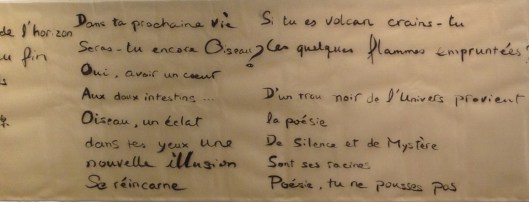 de l'horizon
fin
Dans ta prochaine vie
Seras-tu encore Oiseau?
Oui, avoir un cœur
Aux doux intestins ...
Oiseau, un éclat
dans tes yeux une
nouvelle illusion
Se réincarne
Si tu es volcan crains-tu
Les quelques flammes empruntées?
D'un trou noir de l'Univers provient
la poésie
De Silence et de Mystère
Sont ses racines
Poésie, tu ne pousses pas